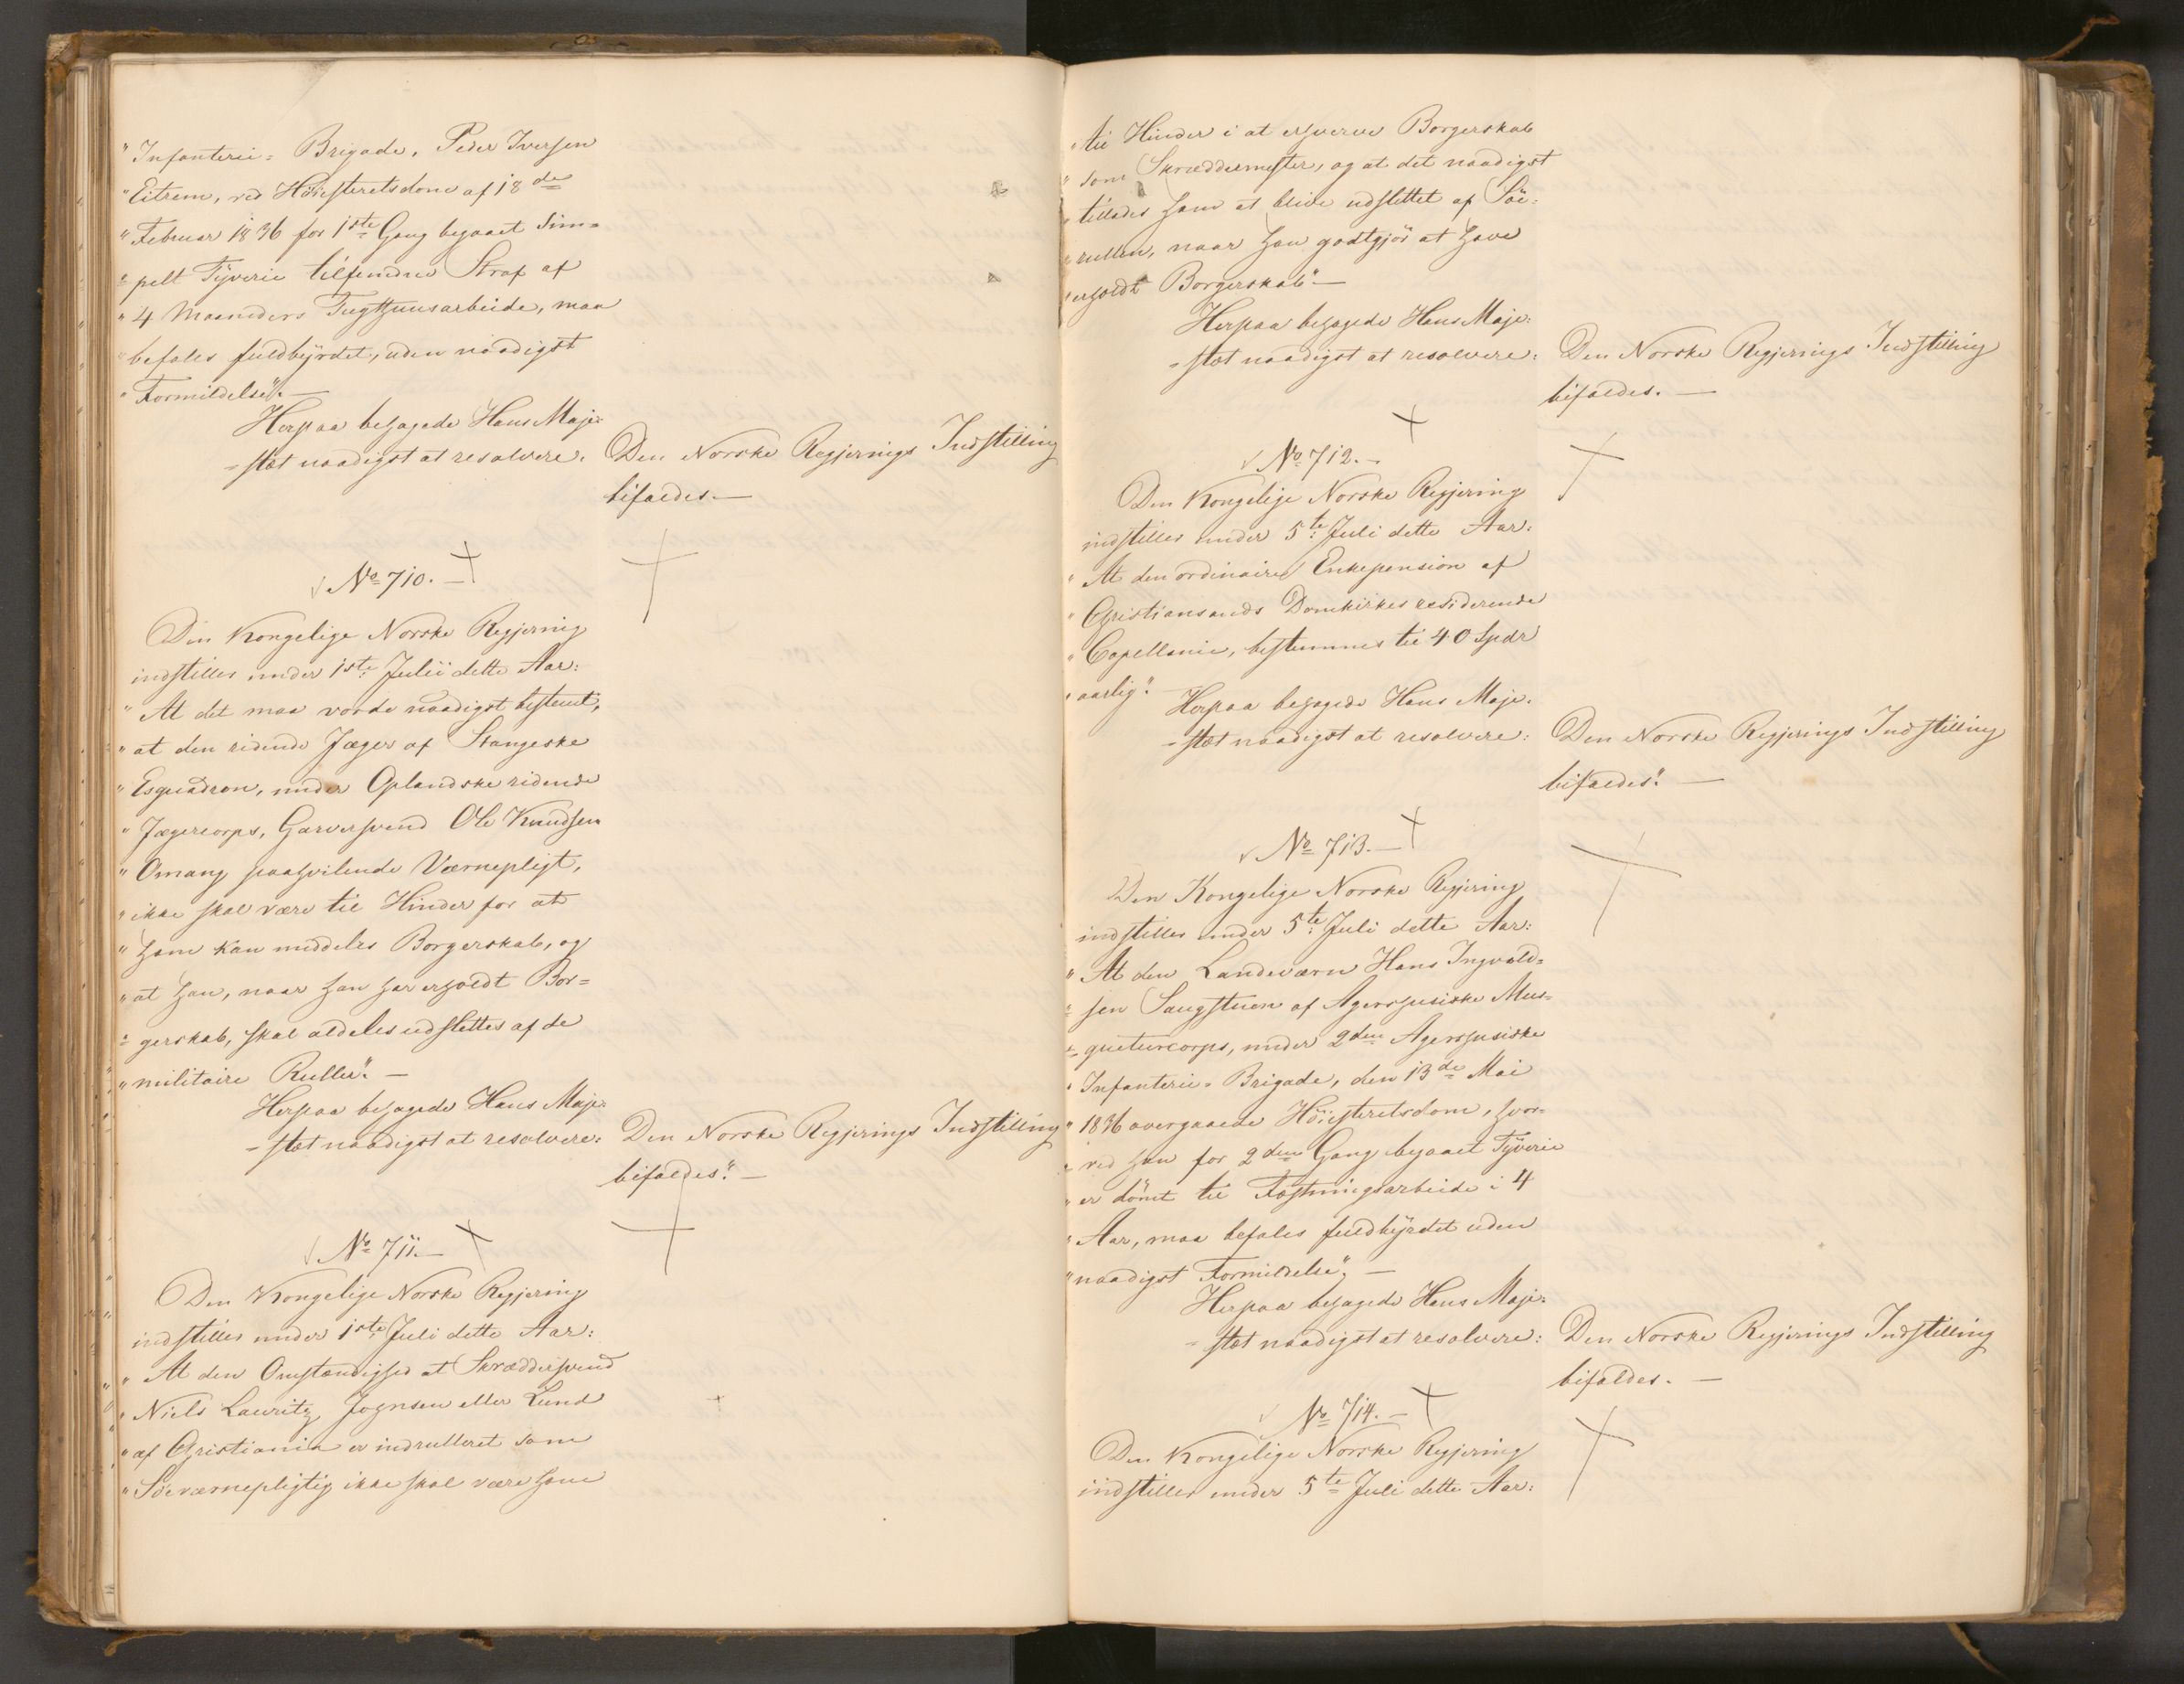 "Infanterie= Brigade, Peder Iversen
"Eitrem, ved Höiesteretsdom af 18de
"Februar 1836 for 1ste Gang begaaet Sim=
"pelt Tÿverie tilfundne Straf af
"4 Maaneders Tugthuusarbeide, maa
"befales fuldbÿrdet, uden naadigst
"Formildelse". —
Herpaa behagede Hans Maje=
=stæt naadigst at resolvere: Den Norske Regjerings Indstilling
bifaldes. —
No 710. —
Den Kongelige Norske Regjering
indstiller under 1ste Julii dette Aar:
"At det maa vorde naadigst bestemt,
"at den ridende Jæger af Stangeske
"Esquadron, under Oplandske ridende
"Jægercorps, Garversvend Ole Knudsen
"Omang paahvilende Værnepligt,
"ikke skal være til Hinder for at
"ham kan meddeles Borgerskab, og
"at han, naar han har erholdt Bor=
"gerskab, skal aldeles udslettes af de
"militaire Ruller". —
Herpaa behagede Hans Maje=
=stæt naadigst at resolvere: Den Norske Regjerings Indstilling
bifaldes". —
No 711. —
Den Kongelige Norske Regjering
indstiller under 1ste Juli dette Aar:
"At den Omstændighed at Skræddersvend
"Niels Lauritz Johnsen eller Lund
"af Christiania er indrulleret som
"Söeværnepligtig ikke skal være ham
"til Hinder i at erhverve Borgerskab
"som Skræddermester, og at det naadigst
"tillades ham at blive udslettet af Söe=
"rullen, naar han godtgjör at have
"erholdt Borgerskab". —
Herpaa behagede Hans Maje=
=stæt naadigst at resolvere: Den Norske Regjerings Indstilling
bifaldes. —
No 712. —
Den Kongelige Norske Regjering
indstiller under 5te Juli dette Aar:
"At den ordinaire Enkepension af
"Christiansands Domkirkes residerende
"Capellanie, bestemmes til 40 Spdr
"aarlig".
Herpaa behagede Hans Maje=
=stæt naadigst at resolvere: Den Norske Regjerings Indstilling
bifaldes". —
No 713. —
Den Kongelige Norske Regjering
indstiller under 5te Juli dette Aar:
"At den Landeværn Hans Ingvald=
"sen Saugstuen af Agershusiske Mus=
"queteurcorps, under 2den Agershusiske
"Infanterie= Brigade, den 13de Mai
"1836 overgaaede Höiesteretsdom, hvor=
"ved han for 2den Gang begaaet Tÿverie
"er dömt til Fæstningsarbeide i 4
"Aar, maa befales fuldbÿrdet uden
"naadigst Formildelse". —
Herpaa behagede Hans Maje=
=stæt naadigst at resolvere: Den Norske Regjerings Indstilling
bifaldes. —
No 714. —
Den Kongelige Norske Regjering
indstiller under 5te Juli dette Aar: